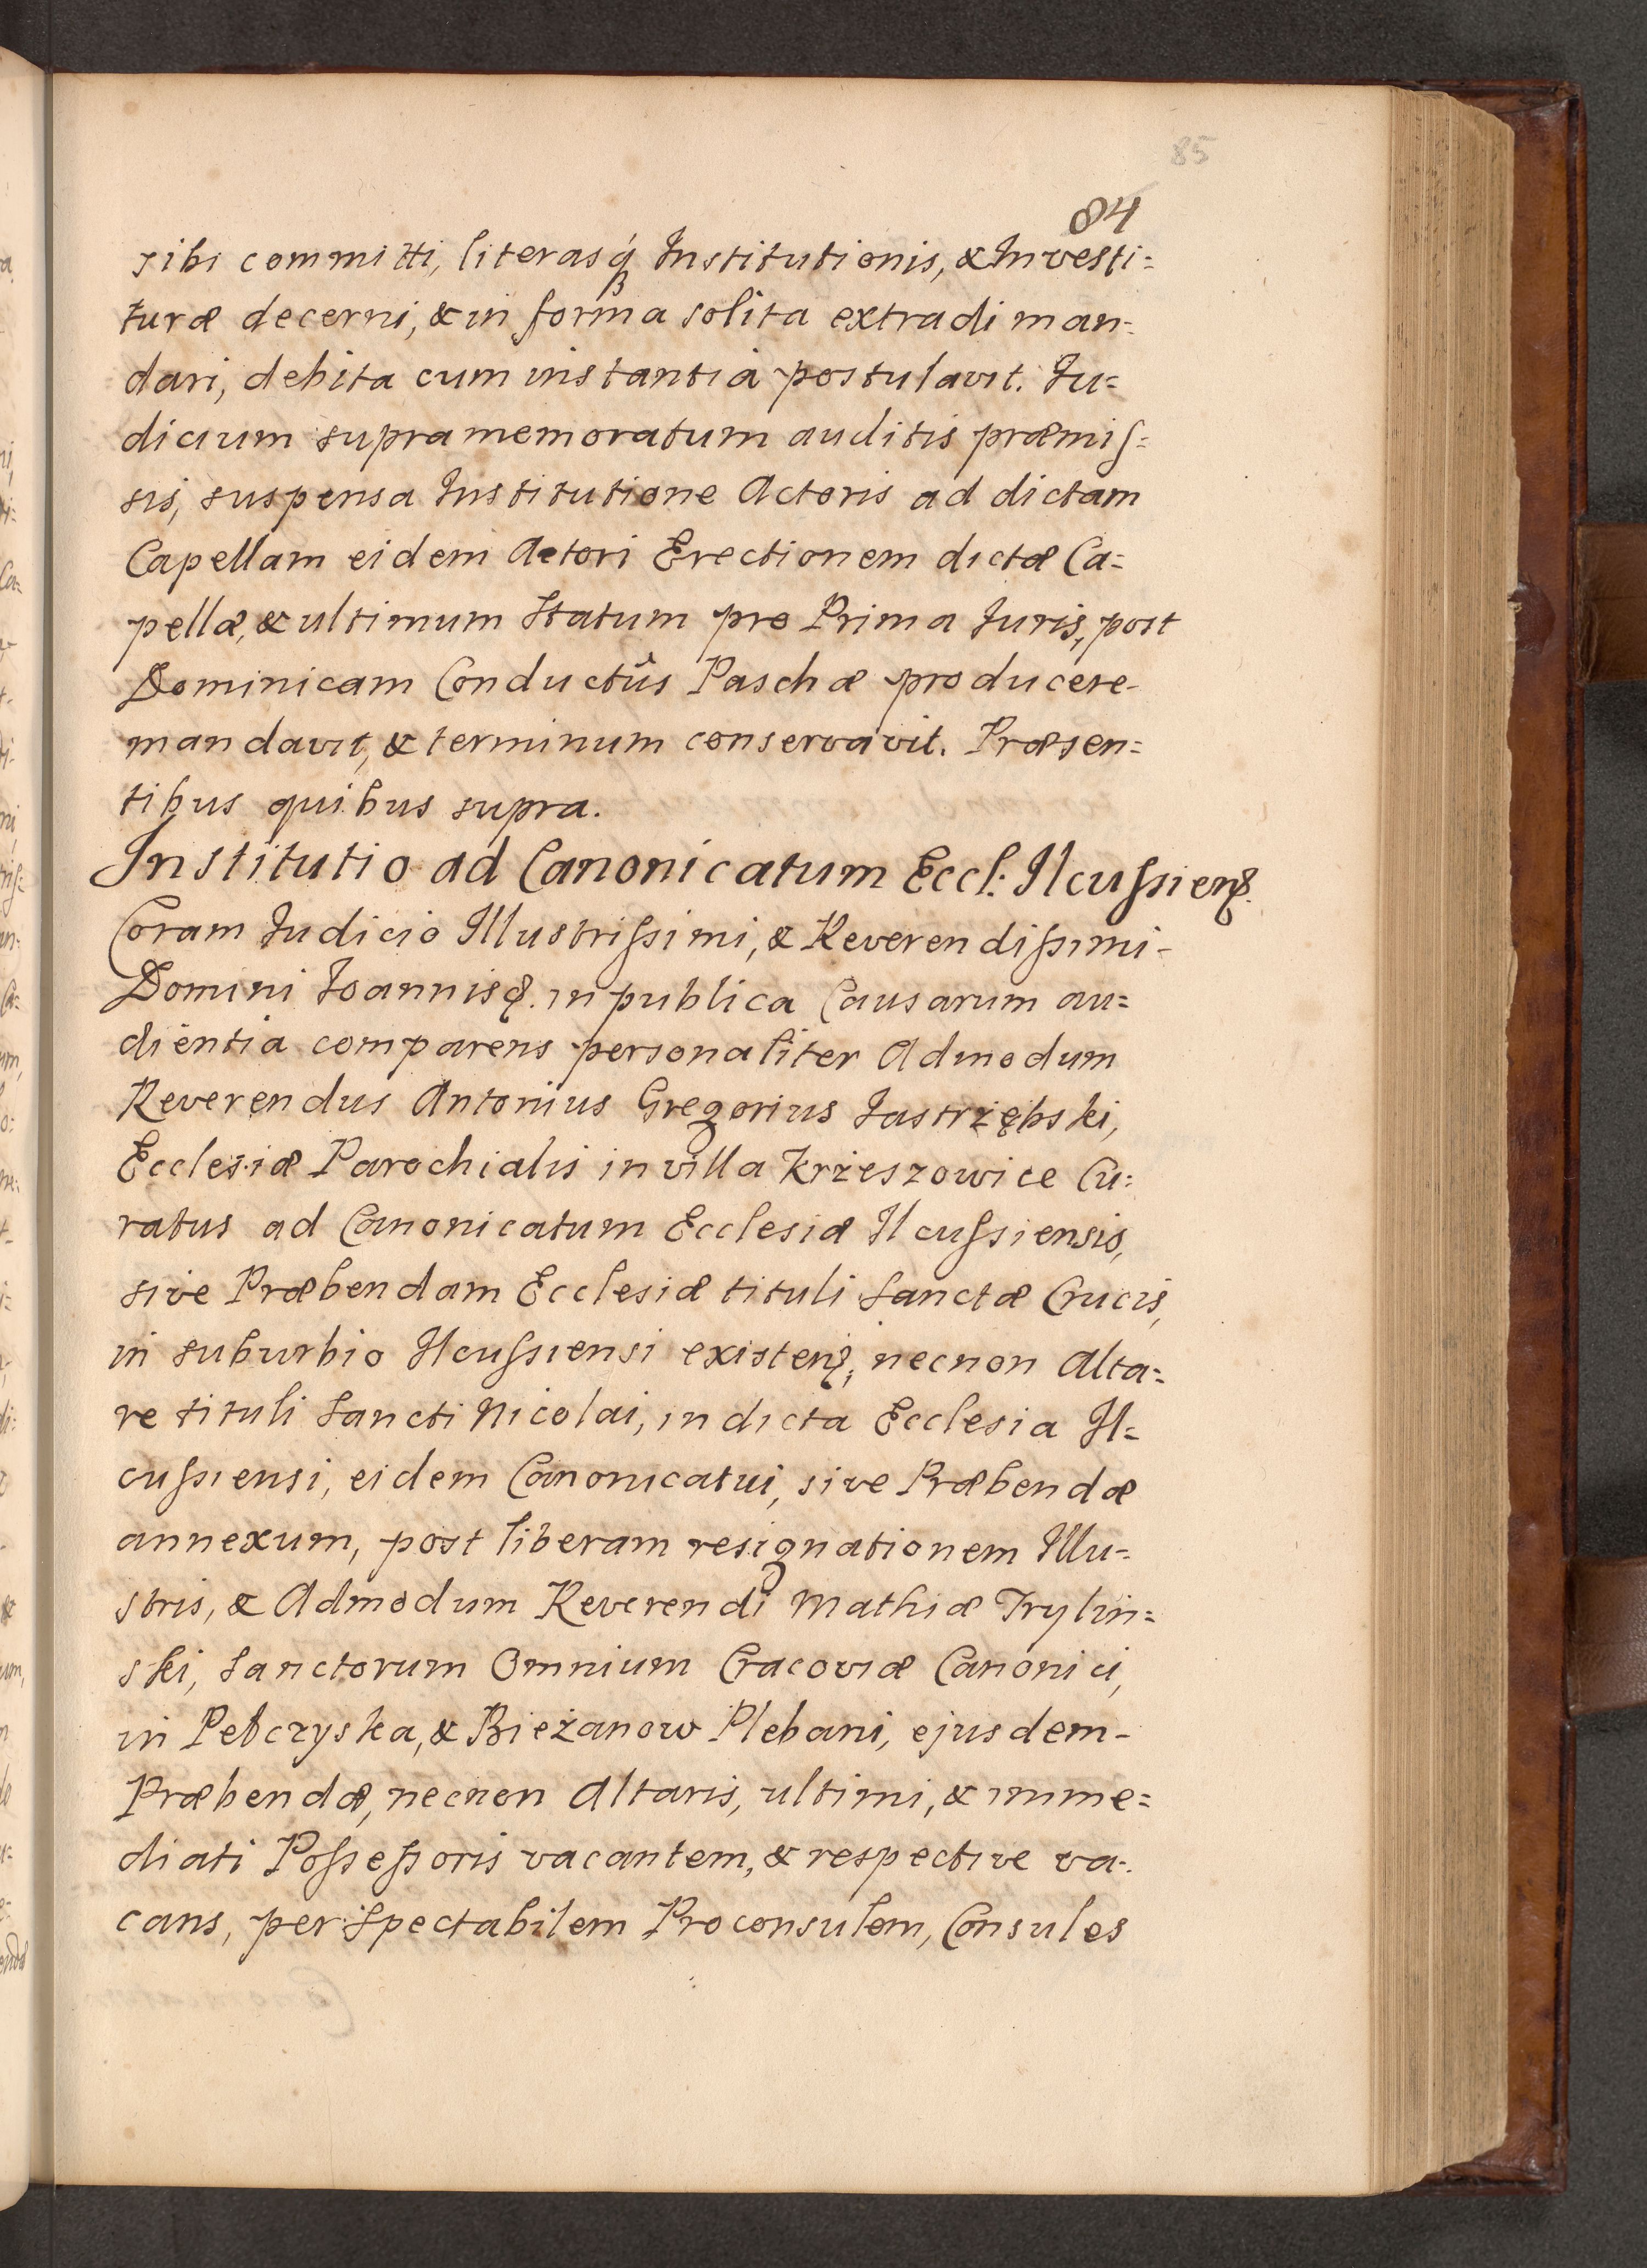 85
84
sibi committi, literasq́ꝫ Institutionis, & Investi=
turæ decerni, & in forma solita extradi man=
dari, debita cum instantia postulavit. Iu=
dicium supra memoratum auditis præmiſ=
sis, suspensa Institutione Actoris ad dictam
Capellam eidem Actori Erectionem dictæ Ca=
pellæ, & ultimum Statum pro Prima Iuris, post
Dominicam Conductûs Paschæ producere-
mandavit, & terminum conservavit. Præsen=
tibus quibus supra.
Institutio ad Canonicatum Eccl: Ilcuſsienꝭ.
Coram Iudicio Illustriſsimi, & Reverendiſsimi-
Domini Ioannisꝭ. in publica Causarum au=
dientia comparens personaliter Admodum
Reverendus Antonius Gregorius Iastrzębski,
Ecclesiæ Parochialis in villa Krzeszowice Cu=
ratus ad Canonicatum Ecclesiæ Ilcuſsiensis,
sive Præbendam Ecclesiæ tituli Sanctæ Crucis,
in suburbio Ilcuſsiensi existenꝭ, necnon Alta=
re tituli Sancti Nicolai, in dicta Ecclesia Il=
cuſsiensi, eidem Canonicatui, sive Præbendæ
annexum, post liberam resignationem Illu=
stris, & Admodum Reverendi Mathiæ Trylin=
ski, Sanctorum Omnium Cracoviæ Canonici,
in Pełczyska, & Bieżanow Plebani, ejusdem-
Præbendæ, necnon Altaris, ultimi, & imme=
diati Poſseſsoris vacantem, & respective va=
cans, per Spectabilem Proconsulem, Consules